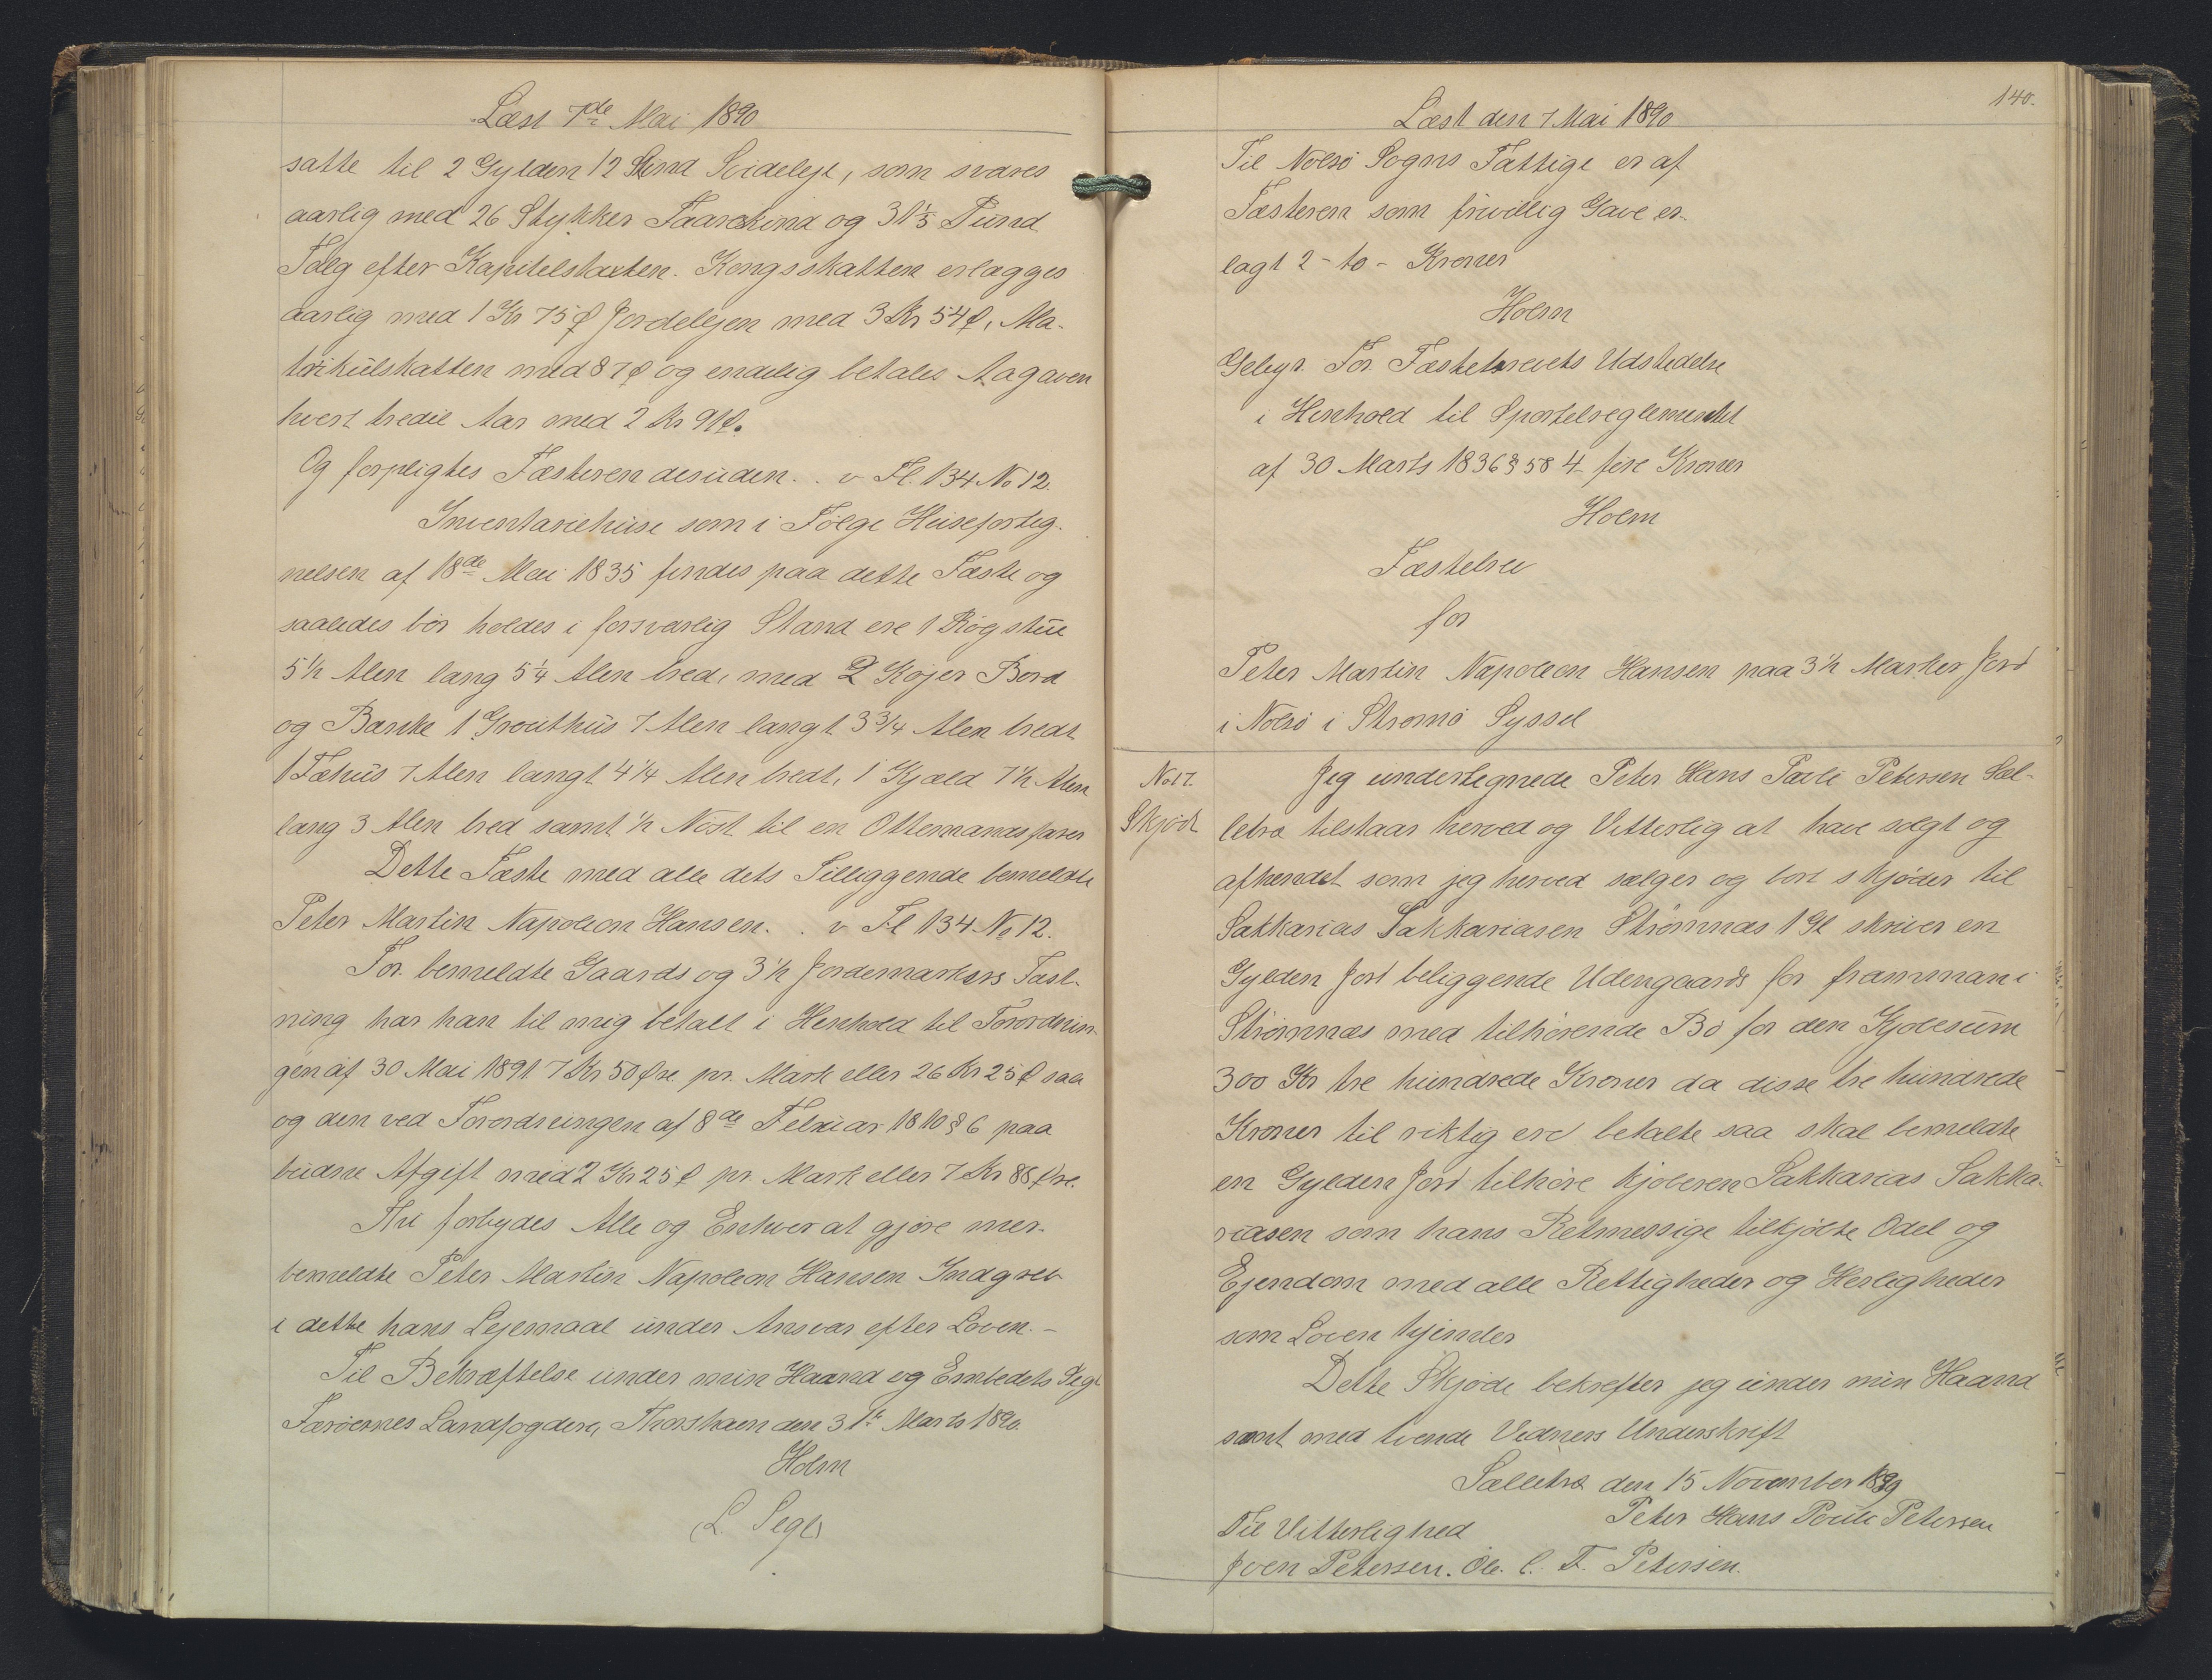 Læst 7de Mai 1890
satte til 2 Gylden 12 Skind Leideleje, som svares
aarlig med 26 Stykker Faareskind og 31 1/5 Pund
Talg efter Kapitelstaxten. Kongsskatten erlægges
aarlig med 1 Kr 75 Ø Jordelejen med 3 Kr 54 Ø, Ma-
trikülskatten med 87 Ø og endelig betales Aagaven
hvert tredie Aar med 2 Kr 91 Ø.
Og forpligtes Fæsteren desüden. . v Fl. 134 No 12.
Inventariehüse som i Følge Hüseforteg-
nelsen af 18de Mai 1835 findes paa dette Fæste og
saaledes bør holdes i forsvarlig Stand ere 1 Røgstüe
5 1/2 Alen lang 5 1/4 Alen bred, med 2 Køjer Bord
og Bænke 1 Grouthüs 7 Alen langt 3 3/4 Alen bredt
1 Fæhüs 7 Alen langt 4 1/4 Alen bredt, 1 Hjæld 7 1/2 Alen
lang 3 Alen bred samt 1/2 Nøst til en Ottemandsfarer
Dette Fæste med alle dets Tilliggende bemeldte
Peter Martin Napoleon Hansen. . v Fl 134 No 12.
For bemeldte Gaards og 3 1/2 Jordemarkers Fæst-
ning har han til mig betalt i Henhold til Forordnin-
gen af 30 Mai 1891 7 Kr 50 Øre pr. Mark eller 26 Kr 25 Ø saa
og den ved Forordningen af 8de Februar 1810 § 6 paa
büdne Afgift med 2 Kr 25 Ø pr. Mark eller 7 Kr 88 Øre.
Thi forbydes Alle og Enhver at gjøre mer-
bemeldte Peter Martin Napoleon Hansen Indgreb
i dette hans Lejemaal ünder Ansvar efter Loven.-
Til Bekræftelse ünder min Haand og Embedets Segl
Færøernes Landfogderi, Thorshavn den 31te Marts 1890.
Holm
(L. Segl)
140.
Læst den 7 Mai 1890
Til Nolsø Sogns Fattige er af
Fæsteren som frivillig Gave er-
lagt 2 - to - Kroner
Holm
Gebyr. For Fæstebrevets Udstedelse
i Henhold til Sportelreglementet
af 30 Marts 1836 § 58 4 fire Kroner
Holm
Fæstebrev
for
Peter Martin Napoleon Hansen paa 3 1/2 Marker Jord
i Nolsø i Strømø Syssel
No 17.
Skjøde
Jeg ündertegnede Peter Hans Poüle Petersen Sæl-
letræ tilstaar herved og Vitterlig at have solgt og
afhendet som jeg herved sælger og bort skjøder til
Sakkarias Sakkariasen Strømnæs 1 Gl skriver en
Gylden Jord beliggende Udengaards for framman i
Strømnæs med tilhørende Bø for den Kjøbesüm
300 Kr tre hündrede Kroner da disse tre hündrede
Kroner til riktig ere betalte saa skal bemeldte
en Gylden Jord tilhøre kjøberen Sakkarias Sakka-
riasen som hans Retmessige tilkjøbte Odel og
Ejendom med alle Rettigheder og Herligheder
som Loven hjemler
Dette Skjøde bekrefter jeg ünder min Haand
samt med tvende Vidners Underskrift
Sælletræ den 15 November 1889
Peter Hans Poüle Petersen
Til Vitterlighed
Joen Petersen. Ole. C. F. Petersen.